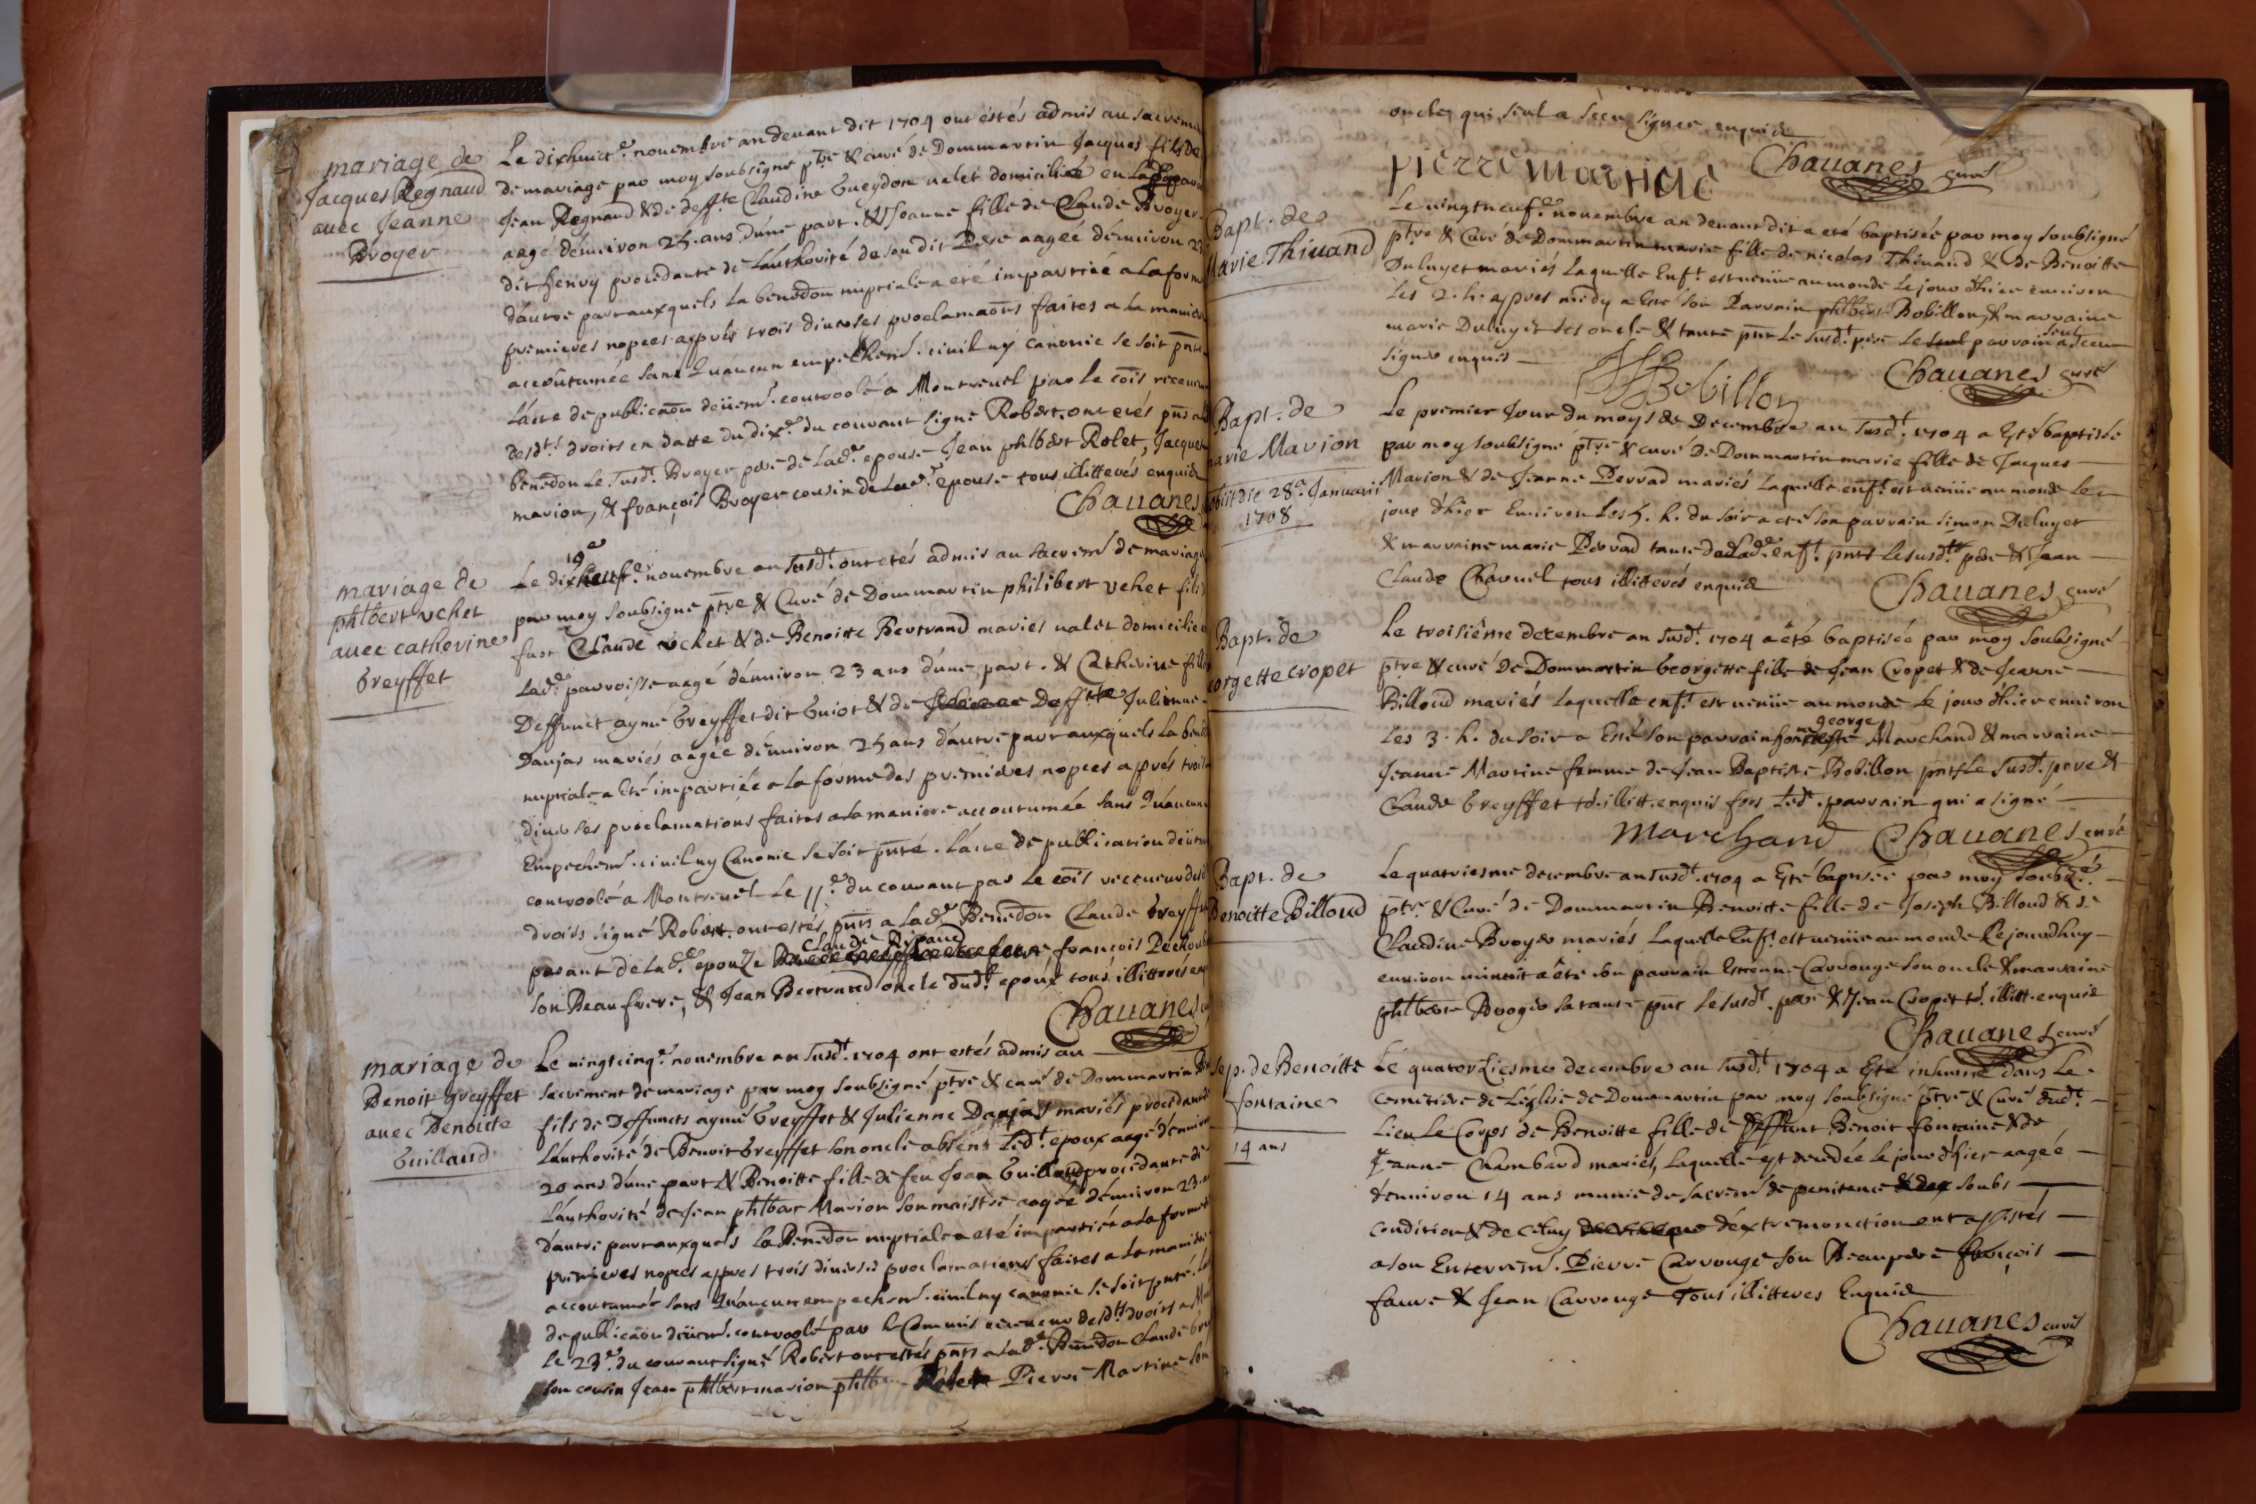 mariage de
Jacques Regnaud
avec Jeanne
Broyer
Le dixhuict.e novembre an devant dit 1704 ont estés admis au sacreme
de mariage par moy soubsigné ptre & curé de Dommartin Jacques fils de
Jean Regnaud & de deff.te Claudine Gueydon valet domicilié en lad. par
aagé d'environ 25. ans d'une part. & Jeanne fille de Claude Broyer
dit henry procedante de l'authorité de son dit Pere aagée d'environ 23
d'autre part auxquels la benedon nuptiale a eté impartiée a la form
premieres nopces apprés trois diverses proclamaons faites a la manie
accoûtumée sans qu'aucun empechem. civil ny canonic se soit pnté
L'acte de publicaon deüem. controolé à Montrevel par le cõis receveur
desd.ts droits en datte du dix.e du courant signé Robert. ont etés pns a la
benedon le susd.t Broyer pere de lad.e epouse Jean phlbert Rolet, Jacques
marion, & françois Broyer cousin de lad.e epouse tous illitterés enquis
Chavanes
mariage de
phlbert vehet
avec catherine
Greyffet
19e
Le novembre an susd.t ont etés admis au sacrem de mariage
par moy soubsigné ptre & Curé de Dommartin philibert vehet fils
Claude vehet & de Benoitte Bertrand mariés valet domicilié
lad.e parroisse aagé d'environ 23 ans d'une part. & Catherine fille
Deffunct aymé Greyffet dit Guiot & de Deff.te Julienne
Danjas mariés aagée d'environ 25 ans d'autre part auxquels la bened
nuptiale a Eté impartiée a la forme des premieres nopces apprés trois
diverses proclamations faites a la maniere accoutumée sans qu'aucun
Empechem. civil ny Canonic se soit pnté. L'acte de publication deüem
controolé a Montrevel le 11.e du courant par le cõis receveur desd
droits signé Robert. ont estés pns a lad.e Benedon Claude Greyffet
parant de lad.e epouze Claude Ripaud françois Pe
son Beaufrere, & Jean Bertrand oncle dud.t epoux tous illitterés enq
Chavanes
mariage de
Benoit greyffet
avec Benoitte
Guillaud
Le vingtcinq.e novembre an susd.t 1704 ont estés admis au
sacrement de mariage par moy soubsigné ptre & curé de Dommartin Be
fils de Deffuncts aymé Greyffet & Julienne Danjas mariés procedant de
l'authorité de Benoit Greyffet son oncle absens led.t epoux aagé d'environ
20 ans d'une part & Benoitte fille de feu Jean Guillaud procedante de
l'authorité de Jean phlbert Marion son maistre aagée d'environ 23.
d'autre part auxquels la Benedon nuptiale a eté impartiée a la forme
premieres nopces appres trois diverses proclamations faites a la maniere
accoutumée sans qu'aucun empechem. civil ny canonic se soit pnté. L
de publicaon deüem. controolé par le Commis receveur desd.ts droits a M
le 23.e du courant signé Robert ont estés pns a lad.e Benedon Claude Gre
son cousin Jean phlbert marion phlb Rolet Pierre Martine son
oncle, qui seul a sceu signer enquis
pierre martine Chavanes curé
Bapt. de
Marie Thivand
Le vingtneuf.e novembre an devant dit a eté baptisée par moy soubsigné
ptre & Curé de Dommartin marie fille de nicolas Thivand & de Benoitte
Duluyet mariés laquelle Enf.t est venüe au monde le jour d'hier environ
les 2. h. appres midy a Eté son Parrain phlbert Bobillon, & marraine
marie Duluyet ses oncle & tante pnt le susd.t pere le parrain a seul sceu
signer enquis
Bobillon Chavanes curé
Bapt. de
marie Marion
obiit die 28.a Januarii
1708
Le premier Jour du moys de Decembre an susd.t 1704 a Eté baptisée
par moy soubsigné ptre & curé de Dommartin marie fille de Jacques
Marion & de Jeanne Perrad mariés laquelle enf.t est venüe au monde le
jour d'hier Environ les 5. h. du soir a eté son parrain simon Duluyet
& marraine marie Perrad tante de lad.e enf.t pnts le susd.t pere & Jean
Claude Charnel tous illitterés enquis
Chavanes curé
Bapt. de
Georgette cropet
Le troisième decembre an susd.t 1704 a été baptisée par moy soubsigné
ptre & curé de Dommartin Georgette fille de Jean Cropet & de Jeanne
Billoud mariés laquelle enf.t est venüe au monde le jour d'hier environ
les 3. h. du soir a Eté son parrain honneste george Marchand & marraine
Jeanne Martine femme de Jean Baptiste Bobillon pnts le susd.t pere &
Claude Greyffet tõ. illitt. enquis fors led.t parrain qui a signé
Marchand Chavanes curé
Bapt. de
Benoitte Billoud
Le quatriesme decembre an susd.t 1704 a Eté baptisée par moy soubs.né
ptre & Curé de Dommartin Benoitte fille de Joseph Billoud & de
Claudine Broyer mariés laquelle Enf.t est venüe au monde le jourdhuy
environ minuit a été son parrain Estienne Carronge son oncle & marraine
phlberte Broyer sa tante pnt le susd.t pere & Jean Cropet tõ. illitt. enquis
Chavanes curé
Sep. de Benoitte
fontaine
14 ans
Le quatorziesme decembre an susd.t 1704 a Eté inhumé dans le
cemetiere de L'église de Dommartin par moy soubsigné ptre & Curé dud.t
Lieu le Corps de Benoitte fille de deffunt Benoit fontaine & de
Jeanne Chambard mariés, laquelle est decedée le jour d'hier aagée
d'environ 14 ans munie du sacrem de penitence soubs
condition & de celuy d'extremonction ont assistés
a son Enterrem. Pierre Carronge son Beaupere françois
faure & Jean Carronge Tous illitteres Enquis
Chavanes curé